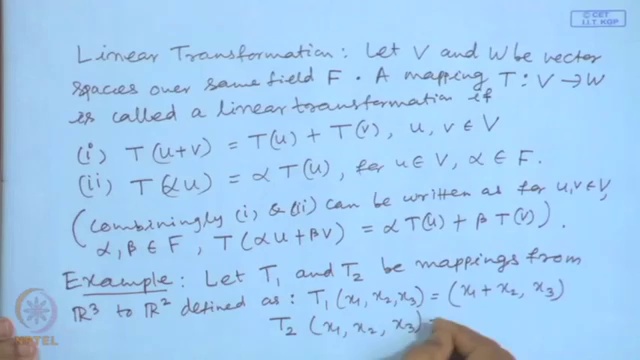 © CET
I.I.T. KGP
Linear Transformation: Let V and W be vector
spaces over same field F. A mapping T: V → W
is called a linear transformation if
(i) T(u+v) = T(u) + T(v), u, v ∈ V
(ii) T(αu) = α T(u), for u ∈ V, α ∈ F.
(Combiningly (i) & (ii) can be written as for u, v ∈ V,
α, β ∈ F, T(αu + βv) = α T(u) + β T(v)).
Example: Let T₁ and T₂ be mappings from
ℝ³ to ℝ² defined as: T₁(x₁, x₂, x₃) = (x₁ + x₂, x₃)
T₂ (x₁, x₂, x₃) =
NPTEL